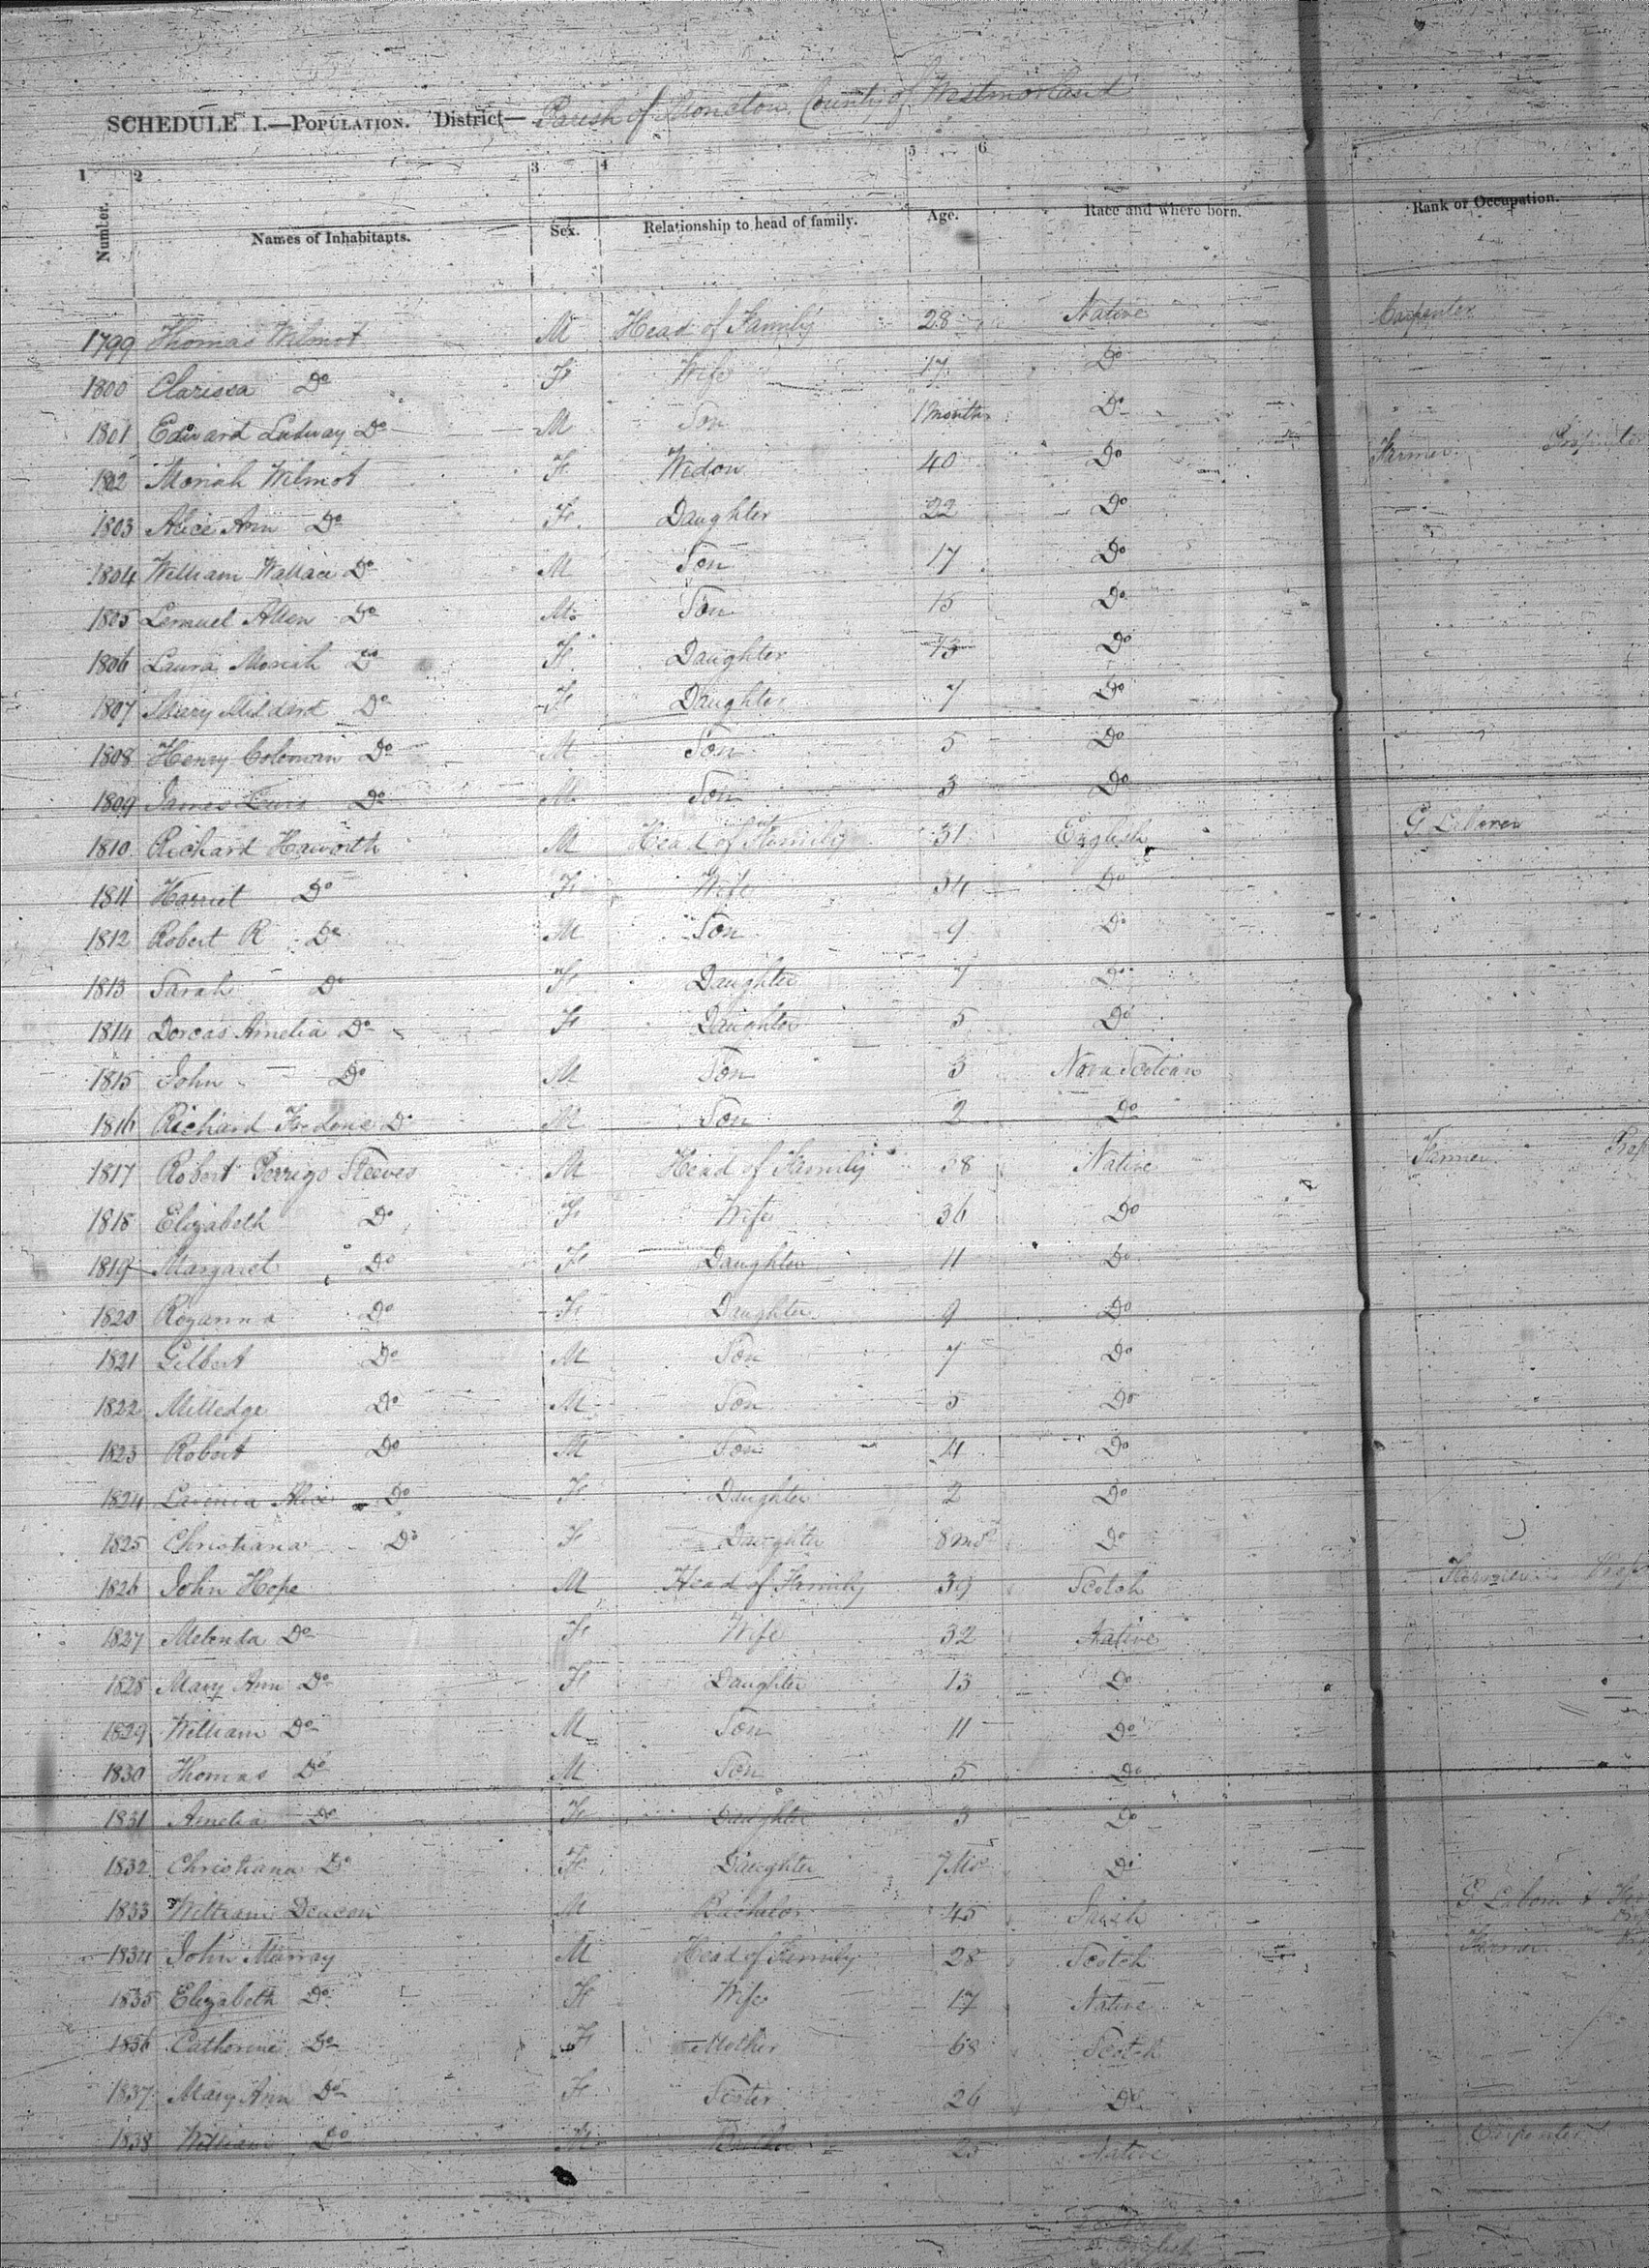 SCHEDULE I.—POPULATION. District— Parish of Moncton County of Westmorland
1 2 3 4 5 6 7
Number. Names of Inhabitants. Sex. Relationship to head of family. Age. Race and where born. Rank or Occupation.
1799 Thomas Wilmot M Head of Family 28 Native Carpenter
1800 Clarissa Do F Wife 17 Do
1801 Edward Do M Son 1 month Do
1802 Moriah Wilmot F Widow 40 Do Farmer
1803 Alice Ann Do F Daughter 22 Do
1804 William Wallace Do M Son 17 Do
1805 Lemuel Allen Do M Son 15 Do
1806 Laura Moriah Do F Daughter 13 Do
1807 Mary Mildred Do F Daughter 7 Do
1808 Henry Coleman Do M Son 5 Do
1809 James Lewis Do M Son 3 Do
1810 Richard Haworth M Head of Family 31 English G Laborer
1811 Harriet Do F Wife 34 Do
1812 Robert R Do M Son 9 Do
1813 Sarah Do F Daughter 7 Do
1814 Dorcas Amelia Do F Daughter 5 Do
1815 John Do M Son 3 Nova Scotian
1816 Richard Frederic Do M Son 2 Do
1817 Robert Steeves M Head of Family 38 Native Farmer
1818 Elizabeth Do F Wife 36 Do
1819 Margaret Do F Daughter 11 Do
1820 Royanna Do F Daughter 9 Do
1821 Gilbert Do M Son 7 Do
1822 Milledge Do M Son 5 Do
1823 Robert Do M Son 4 Do
1824 Lavinia Alice Do F Daughter 2 Do
1825 Christiana Do F Daughter 8 mos Do
1826 John Hope M Head of Family 39 Scotch Farmer
1827 Melinda Do F Wife 32 Native
1828 Mary Ann Do F Daughter 13 Do
1829 William Do M Son 11 Do
1830 Thomas Do M Son 5 Do
1831 Amelia Do F Daughter 3 Do
1832 Christiana Do F Daughter 7 Mos Do
1833 William Deacon M Bachelor 45 Irish G Labom
1834 John Murray M Head of Family 28 Scotch Farmer
1835 Elizabeth Do F Wife 17 Native
1836 Catherine Do F Mother 68 Scotch
1837 Mary Ann Do F Sister 26 Do
1838 William Do M Brother 25 Native Carpenter
English